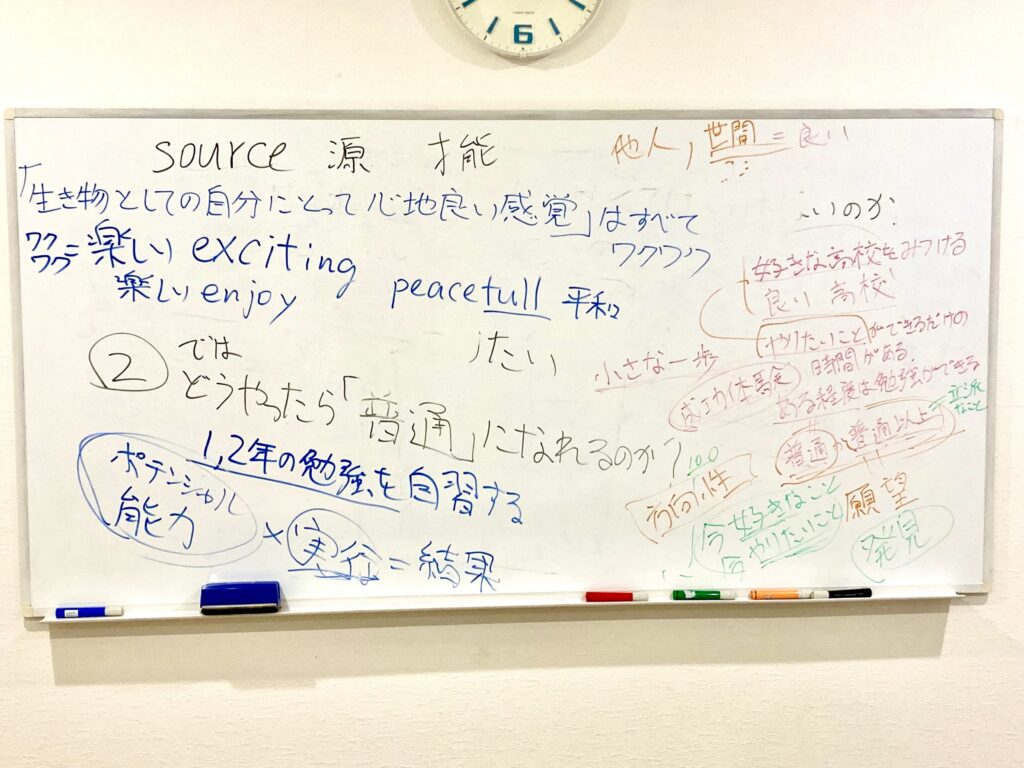 6
source 源 才能
他人, 世間 = 良い
「生き物としての自分にとって心地良い感覚」はすべて
ワクワク
ワク
ワク = 楽しい exciting
楽しい enjoy
peacefull 平和
いのか
好きな高校をみつける
良い高校
やりたいことができるだけの
時間がある.
ある程度は勉強ができる
小さな一歩
成功体験
② では
どうやったら「普通」になれるのか?
たい
普通か普通以上
立派
なこと
1,2年の勉強を自習する
ポテンシャル
能力 × 実行 = 結果
100
方向性
今好きなこと
今やりたいこと
願望
発見